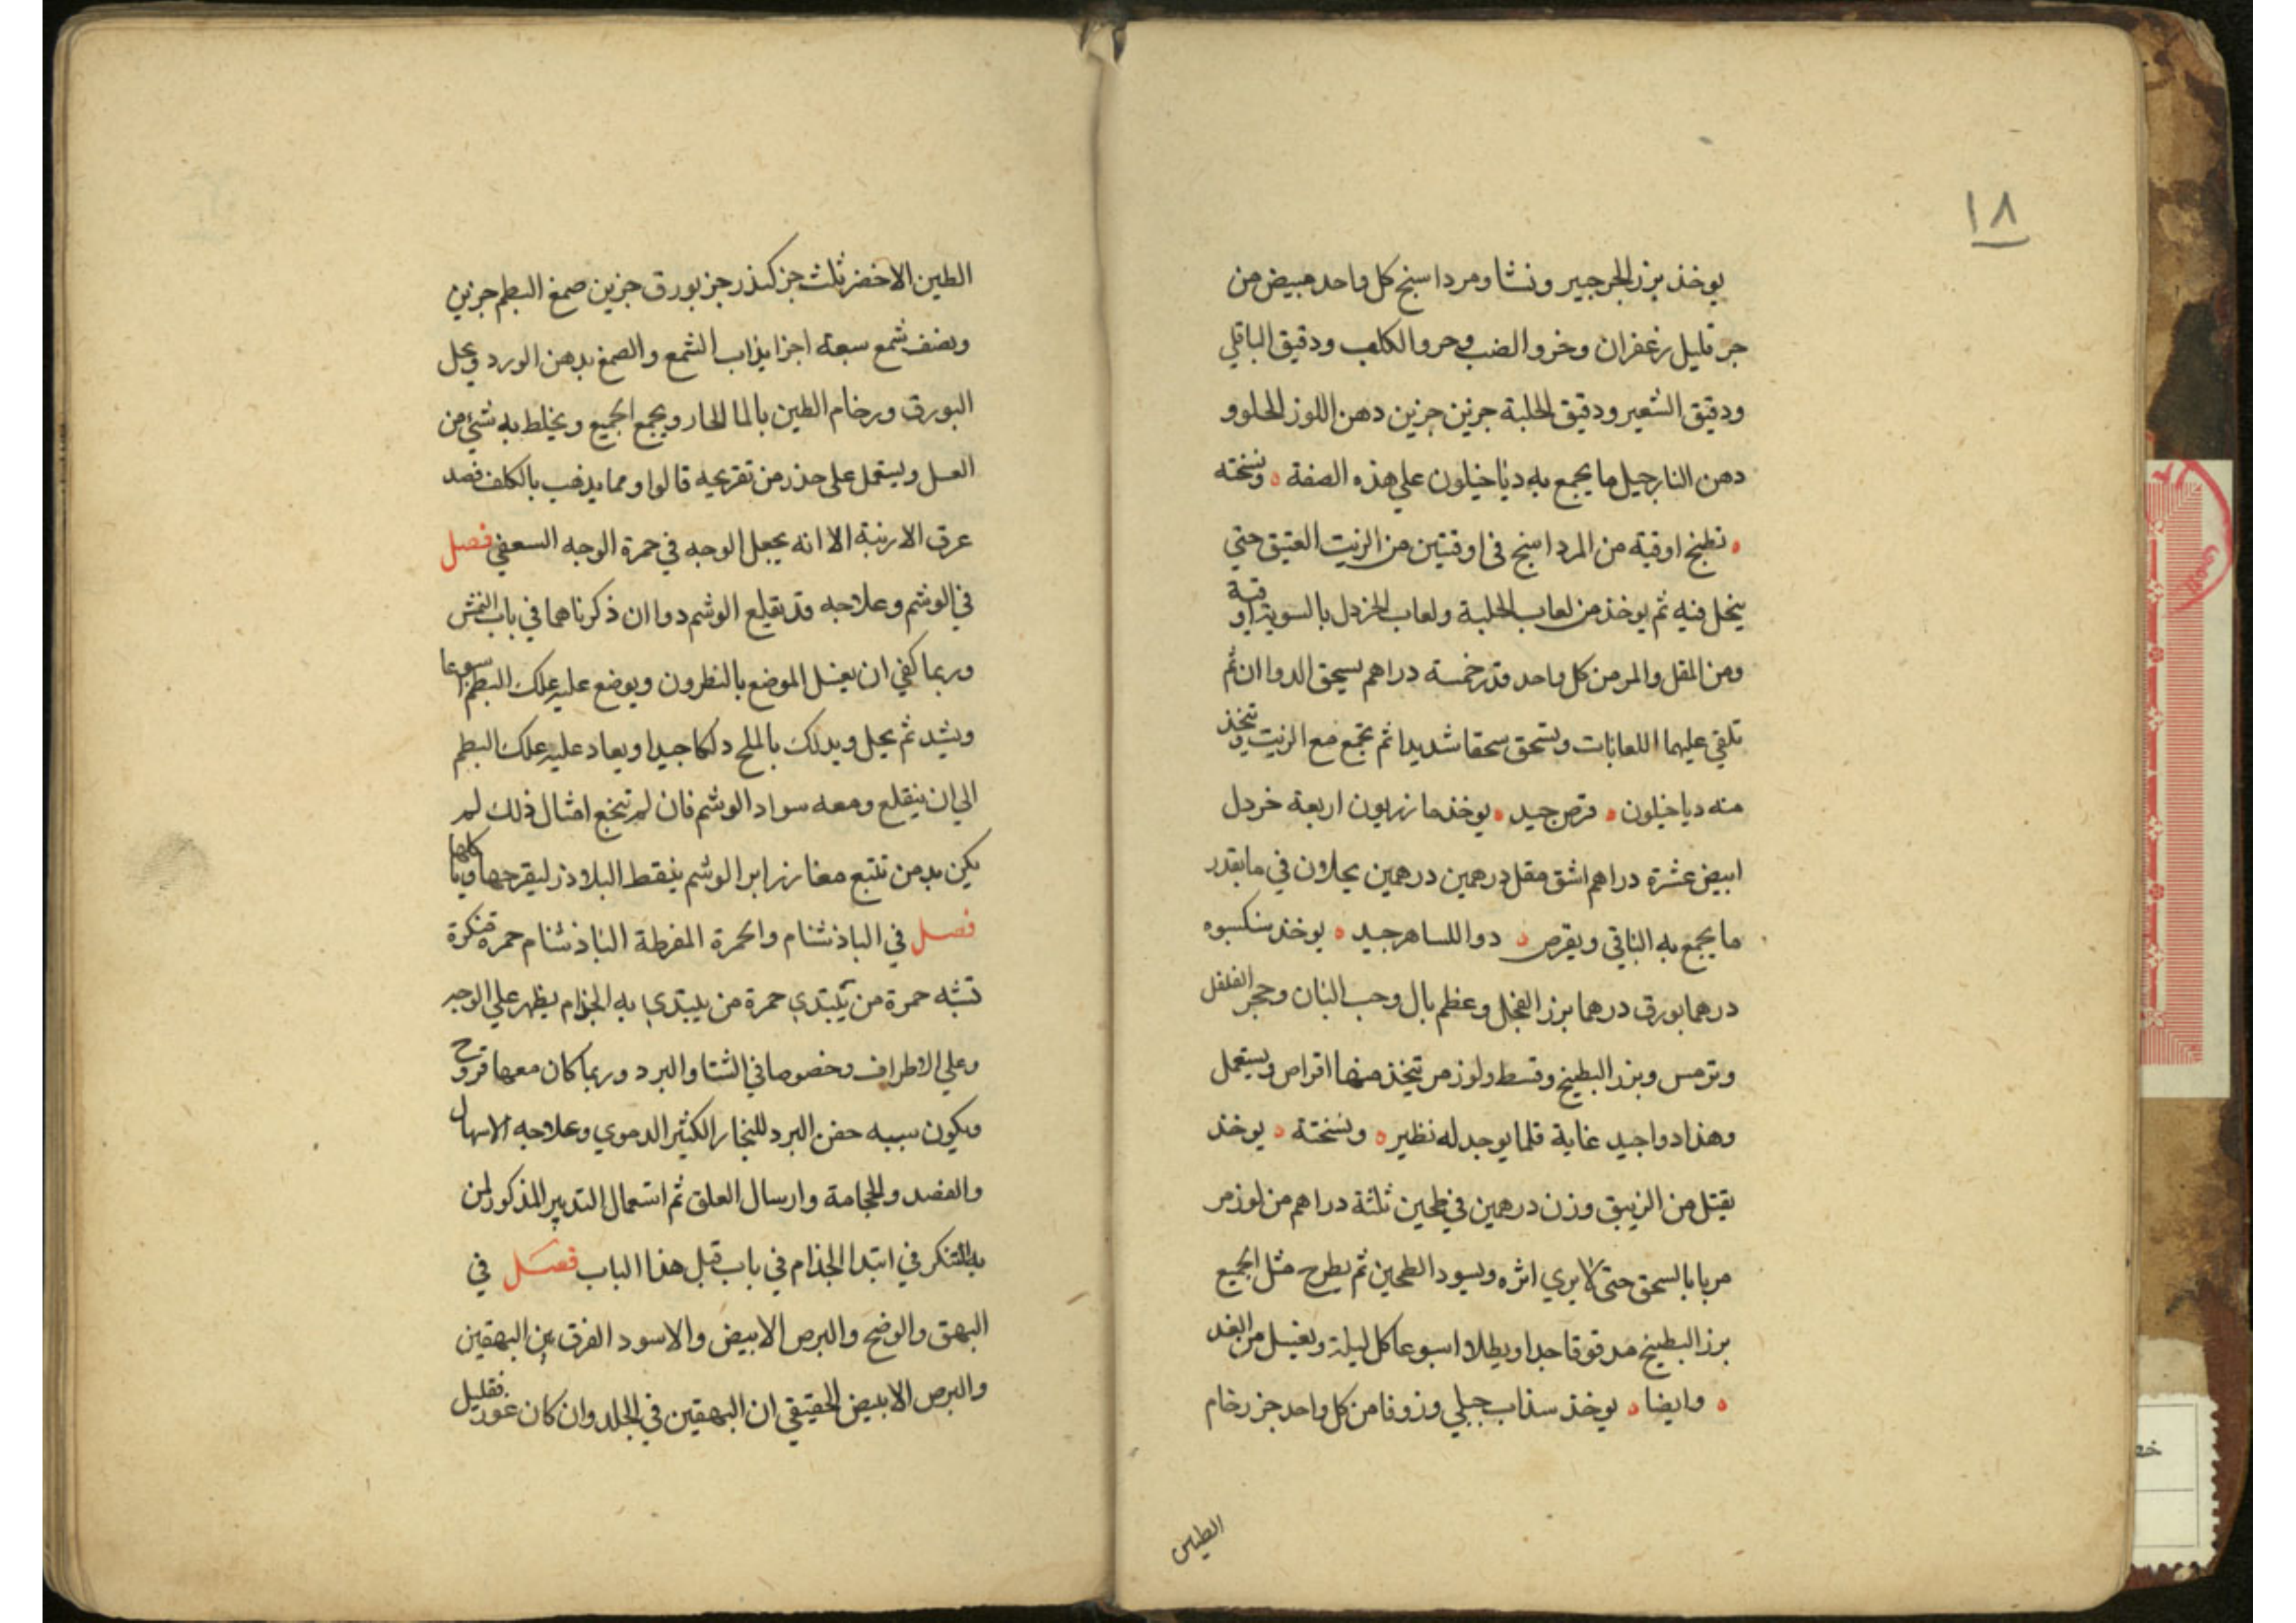 ١٨
يوخذ بزر الجرجير ونشا ومرداسنج كل واحد مبيض من
جز قليل زعفران وخرو الضب وخرو الكلب ودقيق الباقلي
ودقيق الشعير ودقيق الحلبة جزين جزين دهن اللوز الحلو و
دهن النارجيل ما يجمع به دياخيلون علي هذه الصفة ونسخته
تطبخ اوقية من المرداسنج في اوقيتين من الزيت العتيق حتي
ينحل فيه ثم يوخذ من لعاب الحلبة ولعاب الخردل بالسوية اوقية
ومن المقل والمر من كل واحد قدر خمسة دراهم يسحق الدواان ثم
تلقي عليهما اللعابات وتسحق سحقا شديدا ثم تجمع مع الزيت وتتخذ
منه دياخيلون قرص جيد يوخذ مازريون اربعة خردل
ابيض عشرة دراهم اشق مقل درهمين درهمين يحلان في ما بقدر
ما يجمع به الباقي ويقرص دوا للساهر جيد يوخذ سنكسبوه
درهما بورق درهما بزر الفجل وعظم بال وحب البان وحجر الفلفل
وترمس وبزر البطيخ وقسط ولوز مر يتخذ منها اقراص ويستعمل
وهذا دوا جيد غاية قلما يوجد له نظير ونسخته يوخذ
يقتل من الزيبق وزن درهمين في طحين ثلثة دراهم من لوز مر
مربا بالسحق حتي لا يري اثره ويسود الطحين ثم يطرح مثل الجميع
بزر البطيخ مدقوقا جدا ويطلا اسبوعا كل ليلة ويغسل من الغد
وايضا يوخذ سذاب جبلي وزوفا من كل واحد جز رخام
الطين
الطين الاخضر ثلث جز كندر جز بورق جزين صمغ البطم جزين
ونصف شمع سبعة اجزا يذاب الشمع والصمغ بدهن الورد ويحل
البورق ورخام الطين بالما الحار ويجمع الجميع ويخلط به شيء من
العسل ويستعمل علي حذر من تقريحه قالوا ومما يذهب بالكلف فصد
عرق الارنبة الا انه يجعل الوجه في حمرة الوجه السعفي فصل
في الوشم وعلاجه قد يقلع الوشم دواان ذكرناهما في باب النمش
وربما كفي ان يغسل الموضع بالنطرون ويوضع عليه علك البطم اسبوعا
ويشد ثم يحل ويدلك بالملح دلكا جيدا ويعاد عليه علك البطم
الي ان ينقلع ومعه سواد الوشم فان لم تنجع امثال ذلك لم
يكن بد من تتبع مغارز ابر الوشم بنقط البلاذر ليقرحها وياكلها
فصل في الباذشنام والحمرة المفرطة الباذشنام حمرة منكرة
تشبه حمرة من يبتدي حمرة من يبتدي به الجذام يظهر علي الوجه
وعلي الاطراف وخصوصا في الشتا والبرد وربما كان معها قروح
ويكون سببه حقن البرد للبخار الكثير الدموي وعلاجه الاسهال
والفصد والحجامة وارسال العلق ثم استعمال التدبير المذكور لمن
به التنكر في ابتدا الجذام في باب قبل هذا الباب فصل في
البهق والوضح والبرص الابيض والاسود الفرق بين البهقين
والبرص الابيض الحقيقي ان البهقين في الجلد وان كان غور فقليل